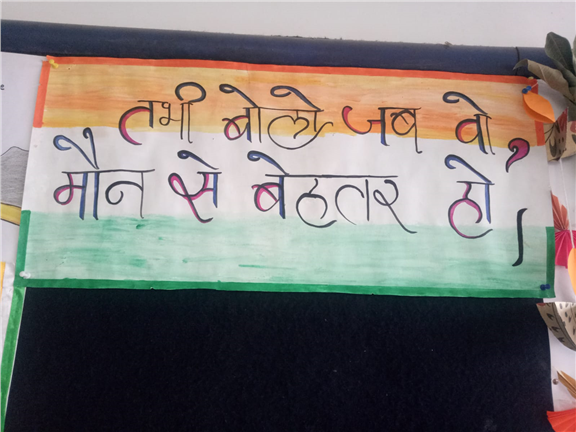 तभी बोलो जब वो,
मौन से बेहतर हो।